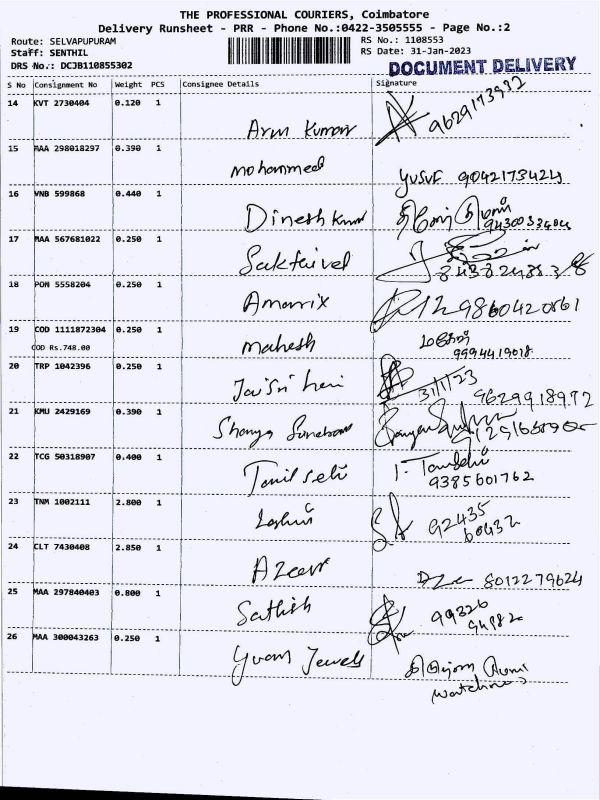 THE PROFESSIONAL COURIERS, Coimbatore
Delivery Runsheet - PRR - Phone No.:0422-3505555 - Page No.:2
Route: SELVAPUPURAM
RS No.: 1108553
Staff: SENTHIL
RS Date: 31-Jan-2023
DRS No.: DCJB110855302
DOCUMENT DELIVERY
S No Consignment No Weight PCS Consignee Details Signature
14 KVT 2730404 0.120 1 Arun Kumar 9629173932
15 MAA 298018297 0.390 1 mohammed YUSUF 9042173424
16 VNB 599868 0.440 1 Dinesh Kumar
17 MAA 567681022 0.250 1 Sakthivel
18 PON 5558204 0.250 1 9860420861
19 COD 1111872304 0.250 1 mahesh மகேஷ்
COD Rs.748.00 9994419018
20 TRP 1042396 0.250 1 Jai Sri hari 31/1/23 9629918972
21 KMU 2429169 0.390 1
22 TCG 50318907 0.400 1 Tamil selvi
9385601762
23 TNM 1002111 2.800 1 92435
60432
24 CLT 7430408 2.850 1 8012279624
25 MAA 297840403 0.800 1 Sathish 99326
94982
26 MAA 300043263 0.250 1 Yuvan Jewels
(watchman)